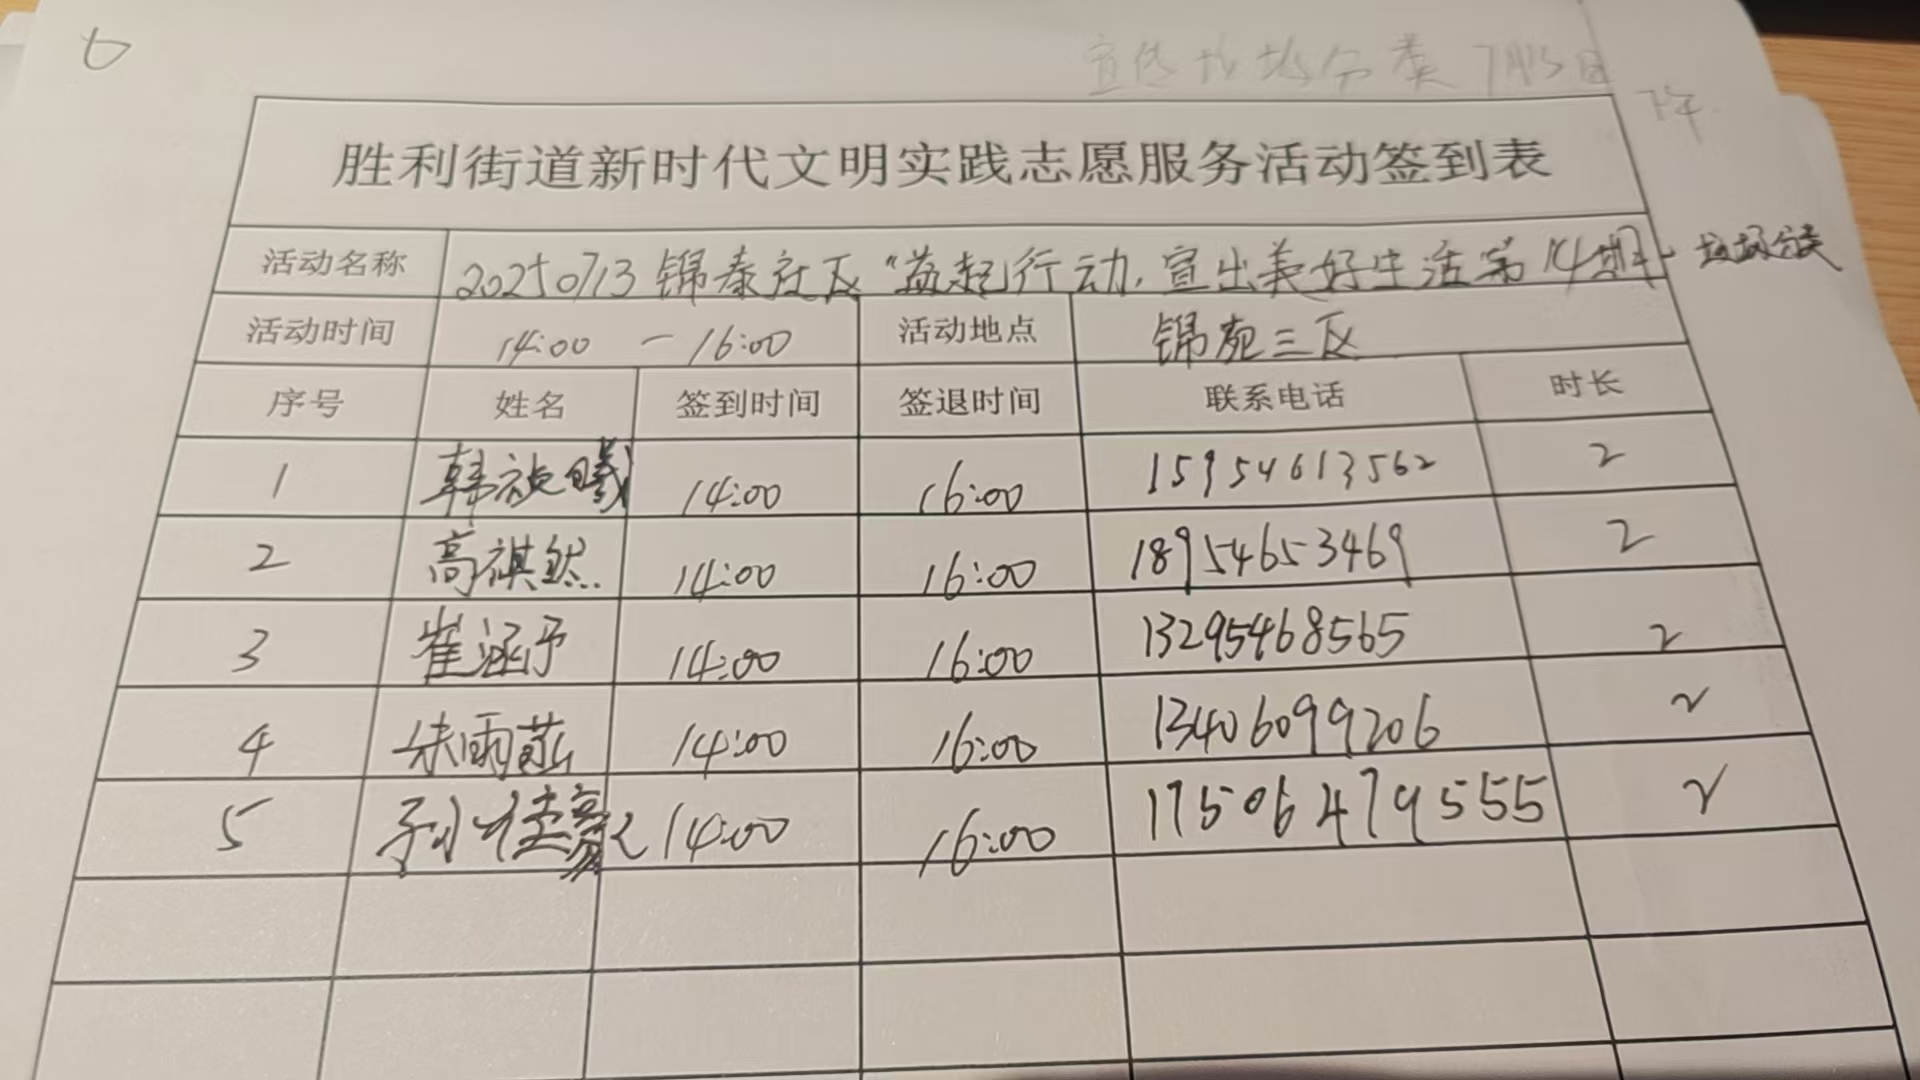 6
宣传垃圾分类 7月13日
下午.
胜利街道新时代文明实践志愿服务活动签到表
活动名称 20250713锦泰社区“益起行动,宣出美好生活第14期-垃圾分类
活动时间 14:00 — 16:00 活动地点 锦苑三区
序号 姓名 签到时间 签退时间 联系电话 时长
1 韩旋曦 14:00 16:00 15954613562 2
2 高祺然 14:00 16:00 18954653469 2
3 崔涵予 14:00 16:00 13295468565 2
4 朱雨 14:00 16:00 13406099206 2
5 孙佳豪 14:00 16:00 17506479555 2